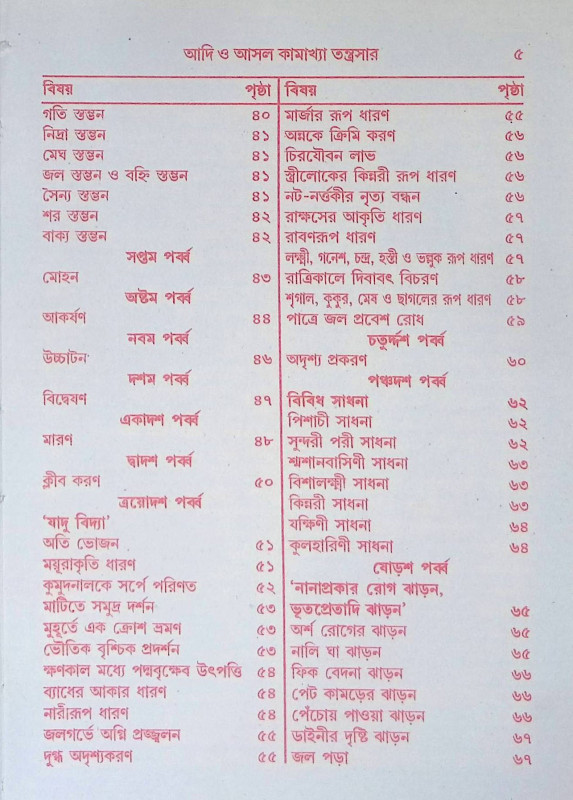 আদি ও আসল কামাখ্যা তন্ত্রসার ৫
বিষয় পৃষ্ঠা
গতি স্তম্ভন ৪০
নিদ্রা স্তম্ভন ৪১
মেঘ স্তম্ভন ৪১
জল স্তম্ভন ও বহ্নি স্তম্ভন ৪১
সৈন্য স্তম্ভন ৪১
শর স্তম্ভন ৪২
বাক্য স্তম্ভন ৪২
সপ্তম পর্ব্ব
মোহন ৪৩
অষ্টম পর্ব্ব
আকর্ষণ ৪৪
নবম পর্ব্ব
উচ্চাটন ৪৬
দশম পর্ব্ব
বিদ্বেষণ ৪৭
একাদশ পর্ব্ব
মারণ ৪৮
দ্বাদশ পর্ব্ব
ক্লীব করণ ৫০
ত্রয়োদশ পর্ব্ব
‘যাদু বিদ্যা’
অতি ভোজন ৫১
ময়ূরাকৃতি ধারণ ৫১
কুমুদনালকে সর্পে পরিণত ৫২
মাটিতে সমুদ্র দর্শন ৫৩
মুহূর্তে এক ক্রোশ ভ্রমণ ৫৩
ভৌতিক বৃশ্চিক প্রদর্শন ৫৩
ক্ষণকাল মধ্যে পদ্মবৃক্ষেব উৎপত্তি ৫৪
ব্যাধের আকার ধারণ ৫৪
নারীরূপ ধারণ ৫৪
জলগর্ভে অগ্নি প্রজ্জ্বলন ৫৫
দুগ্ধ অদৃশ্যকরণ ৫৫
বিষয় পৃষ্ঠা
মার্জার রূপ ধারণ ৫৫
অন্নকে ক্রিমি করণ ৫৬
চিরযৌবন লাভ ৫৬
স্ত্রীলোকের কিন্নরী রূপ ধারণ ৫৬
নট-নর্ত্তকীর নৃত্য বন্ধন ৫৬
রাক্ষসের আকৃতি ধারণ ৫৭
রাবণরূপ ধারণ ৫৭
লক্ষ্মী, গনেশ, চন্দ্র, হস্তী ও ভল্লুক রূপ ধারণ ৫৭
রাত্রিকালে দিবাবৎ বিচরণ ৫৮
শৃগাল, কুকুর, মেষ ও ছাগলের রূপ ধারণ ৫৮
পাত্রে জল প্রবেশ রোধ ৫৯
চতুর্দ্দশ পর্ব্ব
অদৃশ্য প্রকরণ ৬০
পঞ্চদশ পর্ব্ব
বিবিধ সাধনা ৬২
পিশাচী সাধনা ৬২
সুন্দরী পরী সাধনা ৬২
শ্মশানবাসিণী সাধনা ৬৩
বিশালক্ষ্মী সাধনা ৬৩
কিন্নরী সাধনা ৬৩
যক্ষিণী সাধনা ৬৪
কুলহারিণী সাধনা ৬৪
ষোড়শ পর্ব্ব
‘নানাপ্রকার রোগ ঝাড়ন,
ভূতপ্রেতাদি ঝাড়ন’ ৬৫
অর্শ রোগের ঝাড়ন ৬৫
নালি ঘা ঝাড়ন ৬৫
ফিক বেদনা ঝাড়ন ৬৬
পেট কামড়ের ঝাড়ন ৬৬
পেঁচোয় পাওয়া ঝাড়ন ৬৬
ডাইনীর দৃষ্টি ঝাড়ন ৬৭
জল পড়া ৬৭